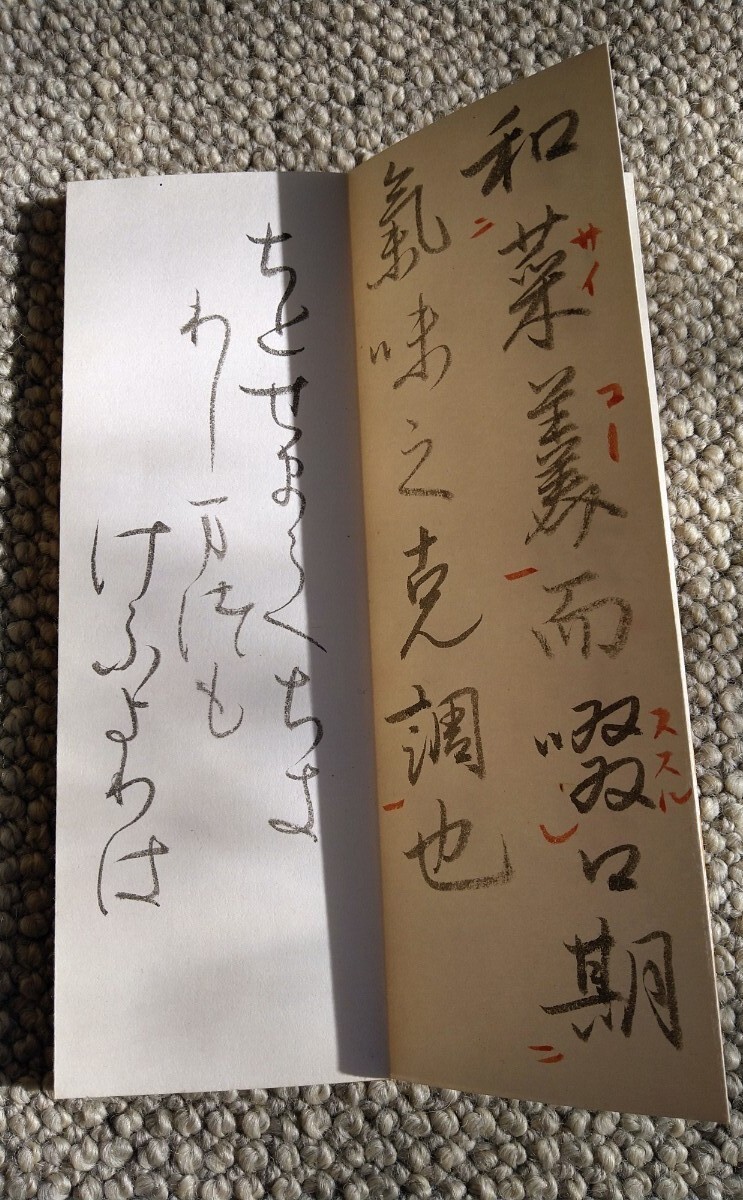 和菜羹而啜口期
サイ
コー
ススル
ニ
一
レ
ニ
氣味之克調也
一
ちとせまてちき
りし万つも
けふよりは